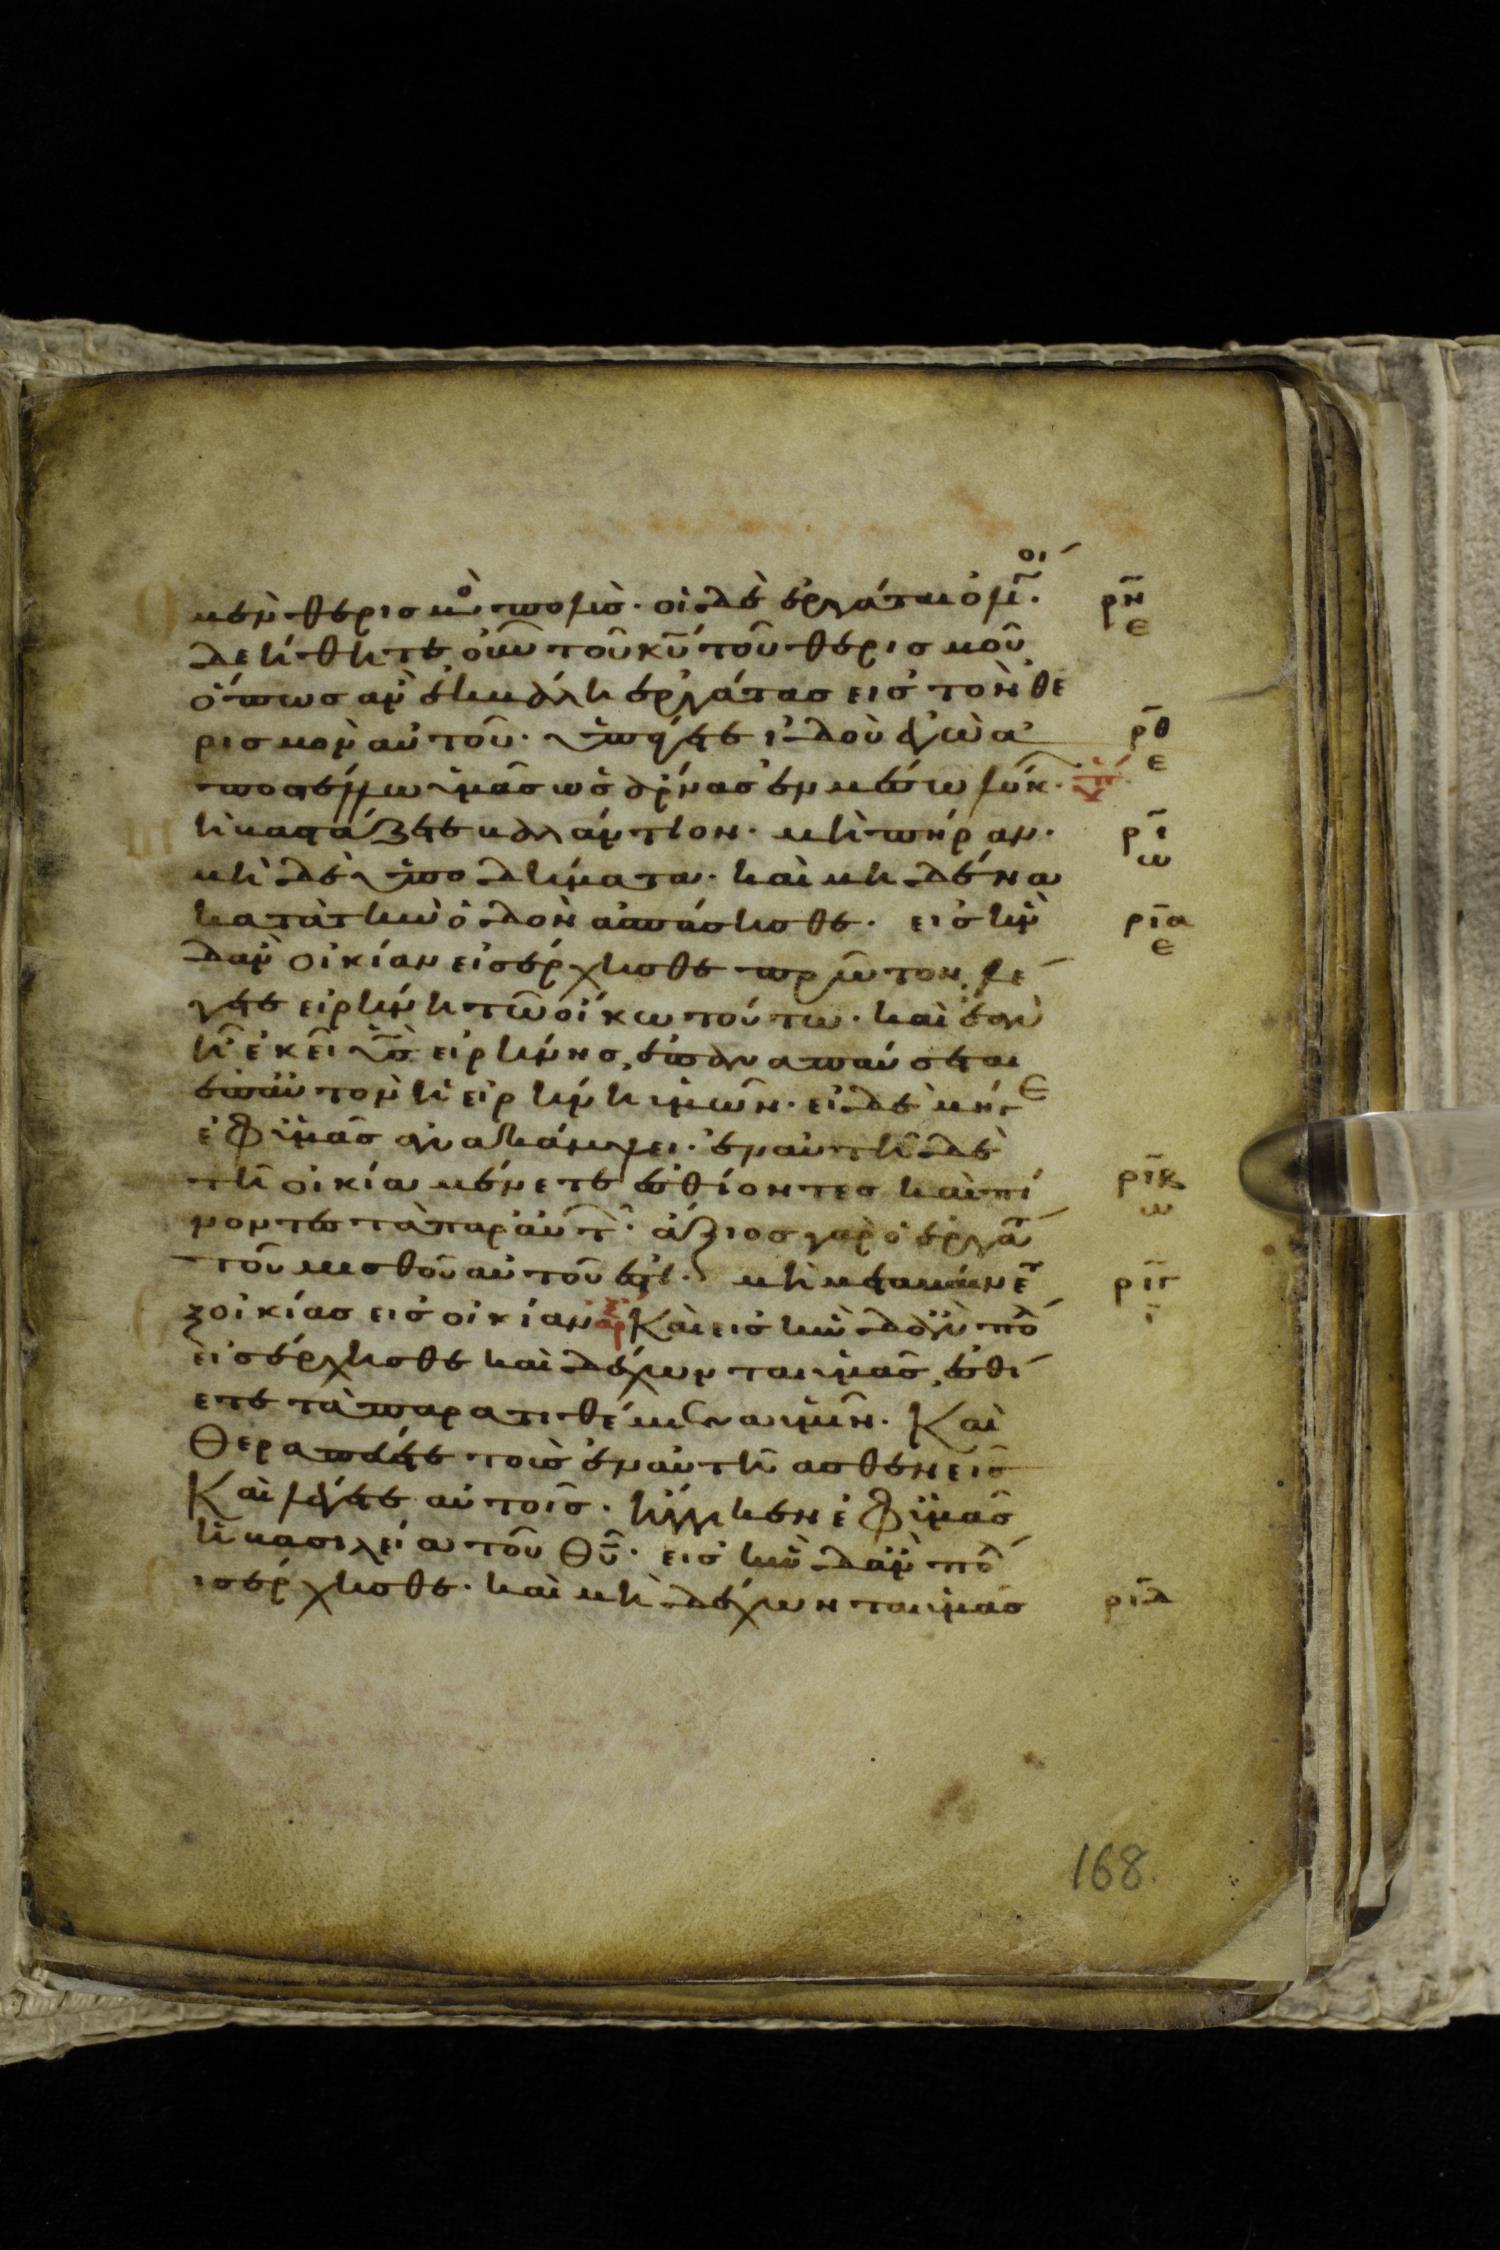 μὲν θερισμὸ πολὺς· οἱ δὲ ἐργάται ὀλί̑γοι· ρη ε
δεήθητε οὖν τοῦ κυ̅ τοῦ θερισμοῦ
ὅπως ἂν ἐκβάλη ἐργάτας εἰς τὸν θε
ρισμὸν αὐτοῦ· ὑπάγετε ἰδοὺ ἐγὼ ἀ ρθ ε
ποστέλλω ὑμᾶς ὡς ἄρνας ἐν μέσω λύκ·
μὴ βαστάζετε βαλάντιον· μὴ πήραν· ρι ω
μὴ δὲ ὑποδήματα· καὶ μηδένα
κατὰ τὴν ὁδὸν ἀσπάσησθε· εἰς ἣν ρια ε
δἂν οἰκίαν εἰσέρχησθε πρῶτον λέ
γετε εἰρήνη τῶ οἴκω τούτω· καὶ ἐὰν
ἦ ἐκεῖ υς̅ εἰρήνης, ἐπαναπαύσεται
ἐπ αὐτὸν ἡ εἰρήνη ὑμῶν· εἰ δὲ μήγε
ἐφ ὑμᾶς ἀνακάμψει· ἐν αὐτῆ δὲ
τῆ οἰκία μένετε ἐσθίοντες καὶ πί ριβ ω
νοντες τὰ παρ αὐτ· ἄξιος γὰρ ὁ ἐργά
τοῦ μισθοῦ αὐτοῦ ἐστι· μὴ μεταβαίνετε ἐ ριγ ι
ξ οἰκίας εἰς οἰκίαν Καὶ εἰς ἣν δ ἂν πό
εἰσέρχησθε καὶ δέχωνται ὑμᾶς, ἐσθί
ετε τὰ παρατιθέμενα ὑμῖν· Καὶ
θεραπεύετε τοὺς ἐν αὐτῆ ἀσθενεῖς
Καὶ λέγετε αὐτοῖς· ἤγγικεν ἐφ ὑμᾶς
ἡ βασιλεία τοῦ θυ̅· εἰς ἣν δἂν πό
ισέρχησθε· καὶ μὴ δέχωνται ὑμᾶς ριδ
168.